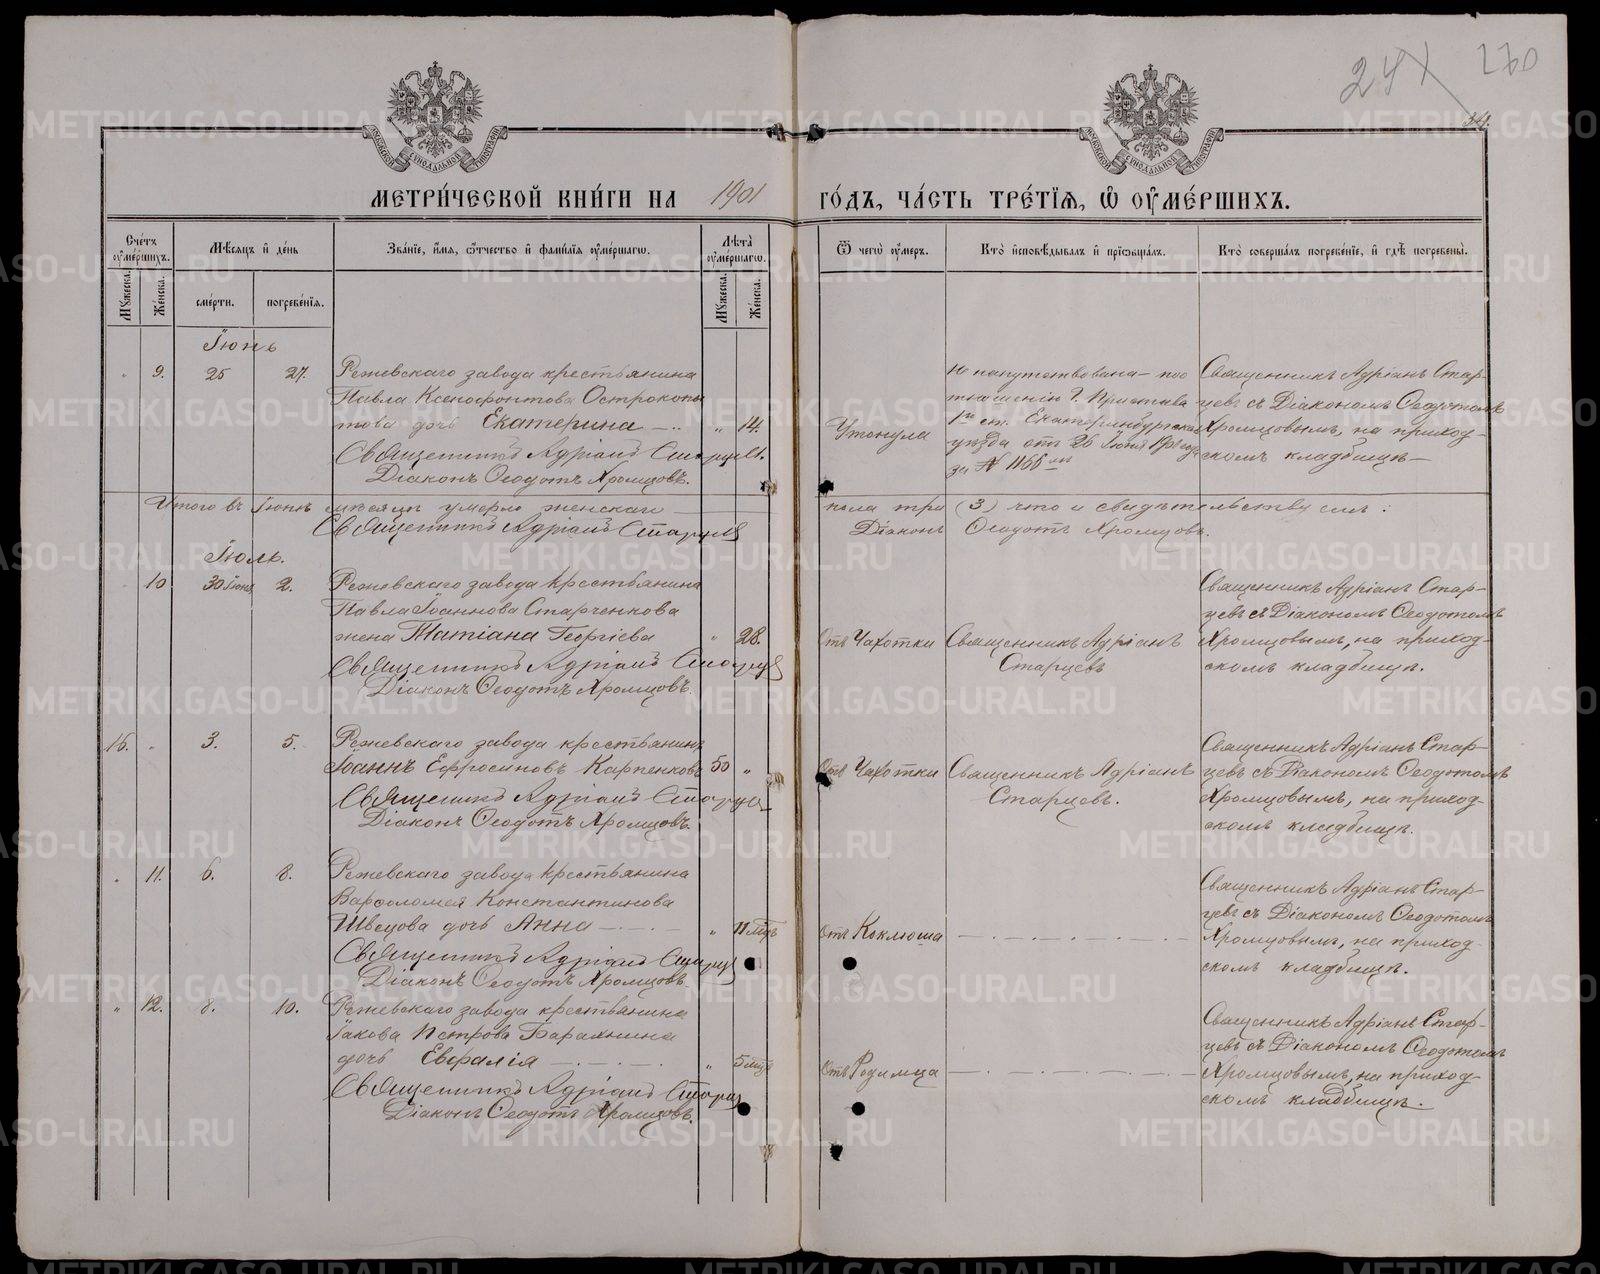 24 270
МЕТРИ́ЧЕСКОЙ КНИ́ГИ НА 1901 ГО́ДЪ, ЧА́СТЬ ТРЕ́ТІѦ, Ѡ҆ ОУ҆МЕ́РШИХЪ.
МОСКОВСКОЙ СѴНОДАЛЬНОЙ ТИПОГРАФІИ
МОСКОВСКОЙ СѴНОДАЛЬНОЙ ТИПОГРАФІИ
Сче́тъ оу҆ме́ршихъ.
Мꙋ́жеска.
Же́нска.
Мѣ́сѧцъ и҆ де́нь
сме́рти.
погребе́нїѧ.
Зва́нїе, и҆́мѧ, ѻ҆́тчество и҆ фами́лїѧ оу҆ме́ршагѡ.
Лѣ́та оу҆ме́ршагѡ.
Мꙋ́жеска.
Же́нска.
Ѿ чегѡ̀ оу҆́меръ.
Кто̀ и҆сповѣ́дывалъ и҆ прїѻбща́лъ.
Кто̀ соверша́лъ погребе́нїе, и҆ гдѣ̀ погребены̀.
Іюнь
" 9. 25 27.
Режевскаго завода крестьянина
Павла Ксенофонтова Острокопы
това дочь Екатерина " 14.
Священникъ Адріанъ Старцевъ.
Діаконъ Ѳеодотъ Хромцовъ.
Утонула
Не напутствована – поо
тношенію Г. Пристава
1го ст. Екатеринбургскаго
уѣзда отъ 26 Іюня 1901 года
за № 1166
Священникъ Адріанъ Стар-
цевъ съ Діакономъ Ѳеодотомъ
Хромцовымъ, на приход-
скомъ кладбищѣ –
Итого въ Іюнѣ мѣсяцѣ умерло женскаго пола три (3) что и свидѣтельствуемъ:
Священникъ Адріанъ Старцевъ Діаконъ Ѳеодотъ Хромцовъ.
Іюль.
10 30 Іюня 2.
Режевскаго завода крестьянина
Павла Іоаннова Старченкова
жена Татіана Георгіева " 28.
Священникъ Адріанъ Старцевъ
Діаконъ Ѳеодотъ Хромцовъ.
Отъ Чахотки
Священникъ Адріанъ
Старцевъ
Священникъ Адріанъ Стар-
цевъ съ Діакономъ Ѳеодотомъ
Хромцовымъ, на приход-
скомъ кладбищѣ.
16. " 3. 5.
Режевскаго завода крестьянинъ
Іоаннъ Ефросиновъ Карпенковъ 50 "
Священникъ Адріанъ Старцевъ
Діаконъ Ѳеодотъ Хромцовъ.
Отъ Чахотки
Священникъ Адріанъ
Старцевъ.
Священникъ Адріанъ Стар-
цевъ съ Діакономъ Ѳеодотомъ
Хромцовымъ, на приход-
скомъ кладбищѣ.
" 11. 6. 8.
Режевскаго завода крестьянина
Варѳоломея Константинова
Швецова дочь Анна " 11 мцъ
Священникъ Адріанъ Старцевъ
Діаконъ Ѳеодотъ Хромцовъ.
Отъ Коклюша
Священникъ Адріанъ Стар-
цевъ съ Діакономъ Ѳеодотомъ
Хромцовымъ, на приход-
скомъ кладбищѣ.
" 12. 8. 10.
Режевскаго завода крестьянина
Іакова Петрова Барахнина
дочь Евѳалія " 5 мцъ
Священникъ Адріанъ Старцевъ
Діаконъ Ѳеодотъ Хромцовъ.
Отъ Родимца
Священникъ Адріанъ Стар-
цевъ съ Діакономъ Ѳеодотомъ
Хромцовымъ, на приход-
скомъ кладбищѣ.
METRIKI.GASO-URAL.RU